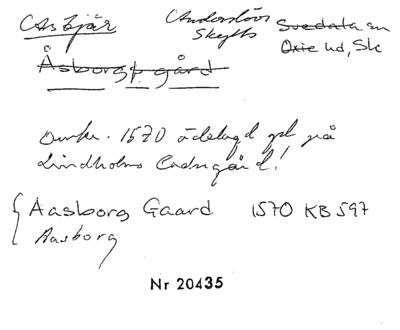 Asbjär Anderslövs Svedala sn
Skytts Oxie hd, Sk
Åsborgs gård
Omkr. 1570 ödelagd pl på
Lindholms Ladugård!
Aasborg Gaard 1570 KB 597
Aasborg
Nr 20435